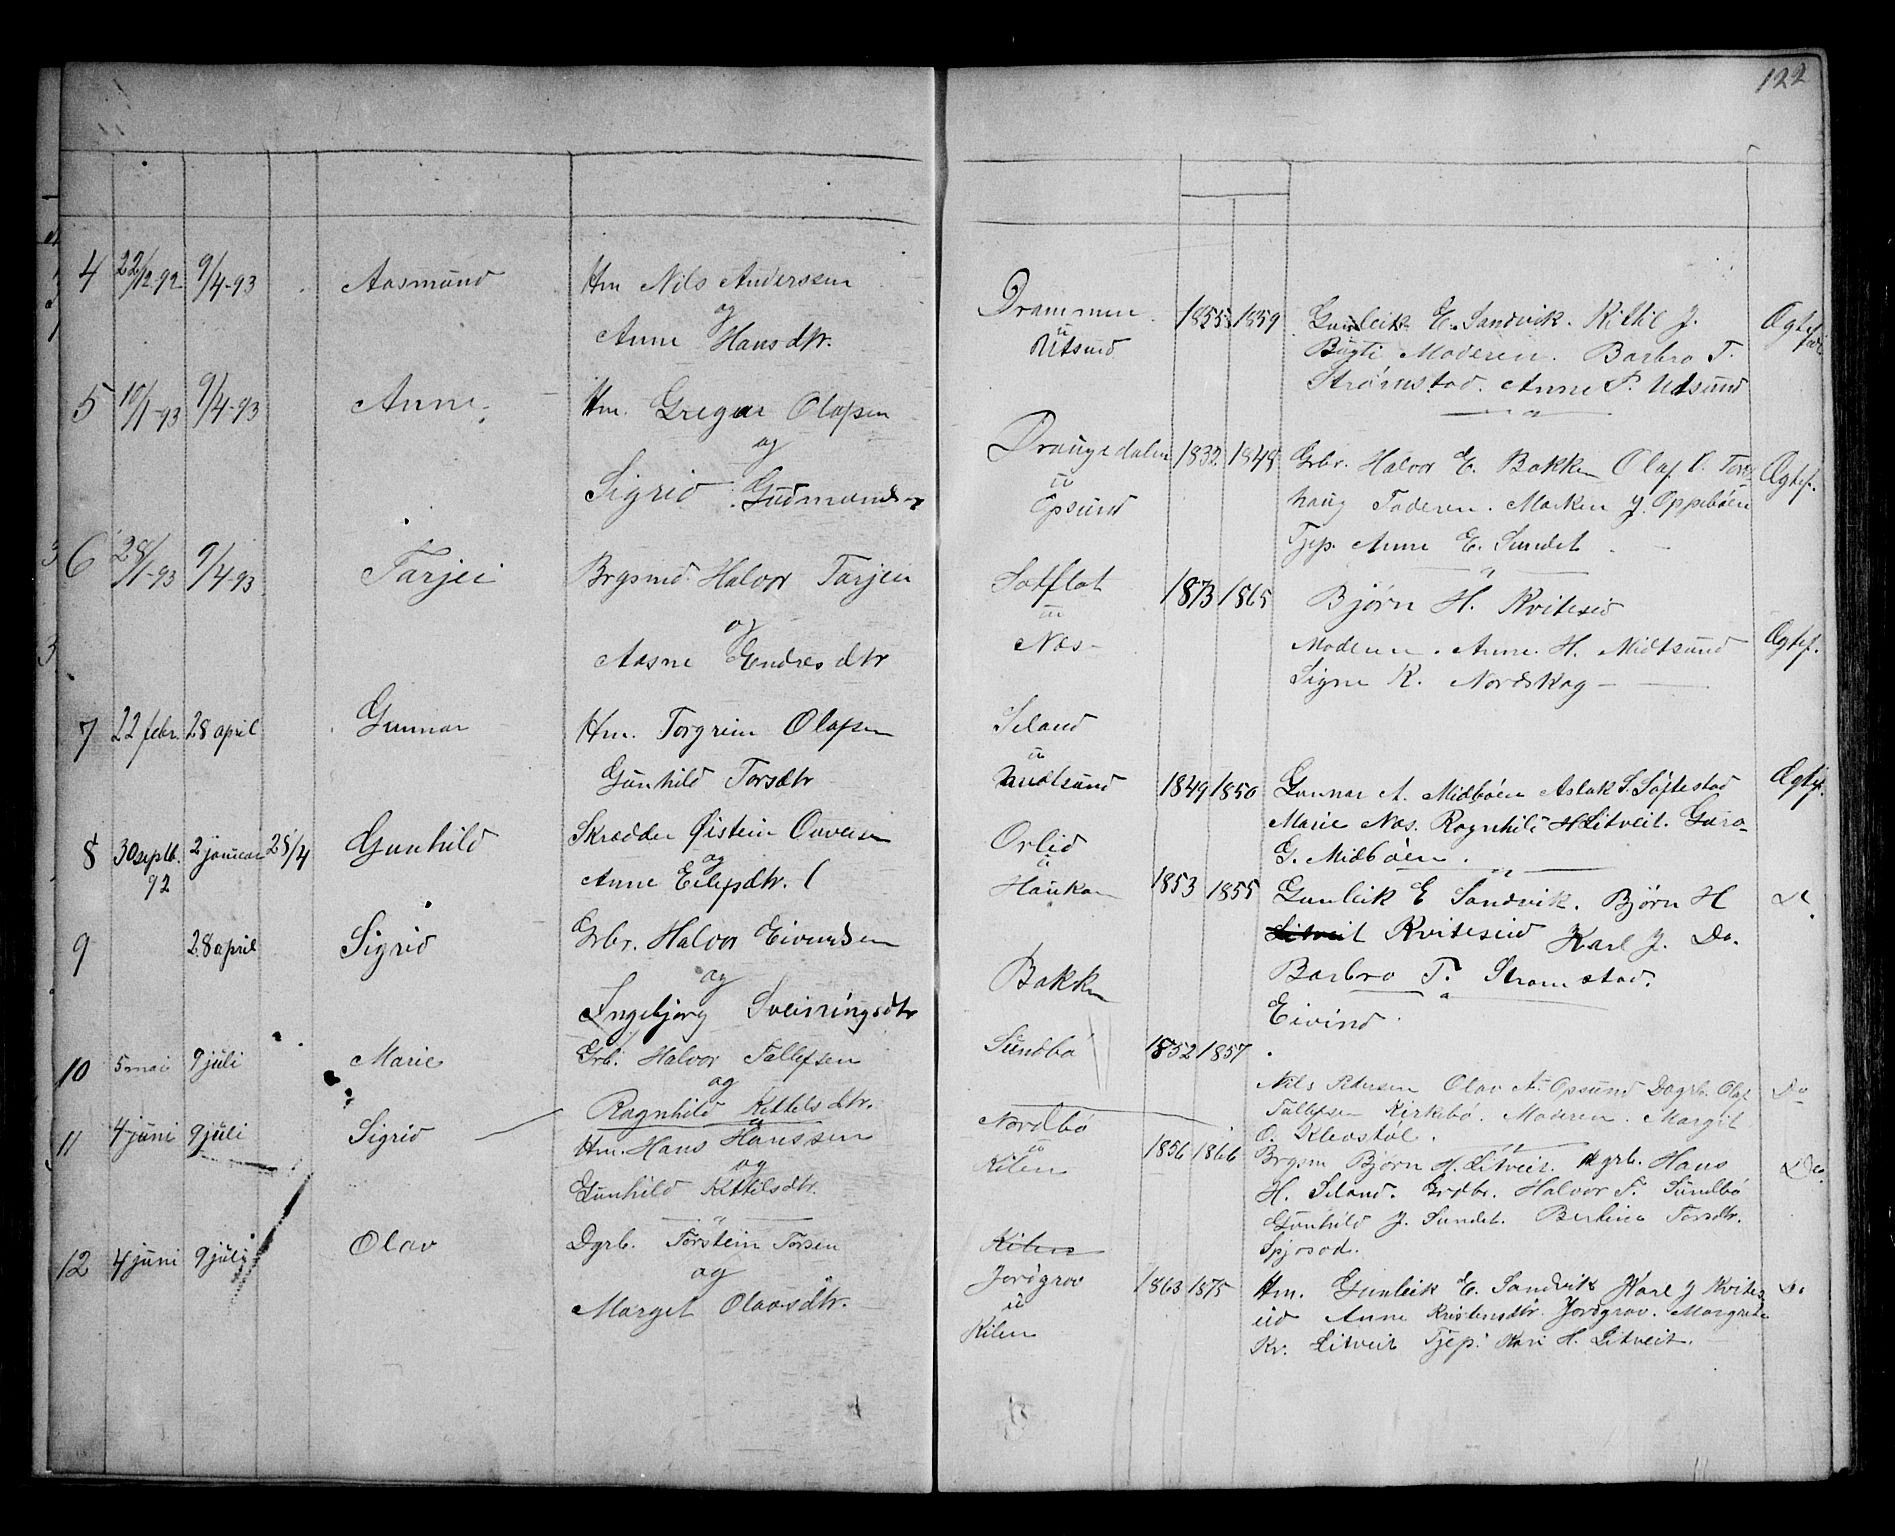 122
4 22/12-92 9/4-93 Aasmund Hm Nils Anderssen
og
Anne Hansdtr.
Drammen 1855 1859 Gunleik E. Sandvik. Kittil J.
u
Utsund
Moderen. Barbro T.
Strømstad. Anne P. Udsund
Ægtef.
5 10/1-93 9/4-93 Anne. Hm. Gregar Olafsen
og
Sigrid Gudmunds
Drangedalen 1832 1848 Grbr. Halvor E. Bakken Olaf
u
Opsund
haug Faderen. Marken J. Oppebøen
Tjep. Anne E. Sundet
Ægtef.
6 28/1-93 9/4-93 Tarjei Brgsmd. Halvor Tarjei
og
Aasne Endresdtr
Satflat 1873 1865 Bjørn H. Kviteseid
u
Nas-
Moderen. Anne H. Midtsund
Signe K. Nordskog
Ægtef.
7 22 febr. 28 april Gunnar Hm. Torgrim Olafsen
Gunhild Torsdtr
Seland
u
Midtsund 1849 1850 Gunnar A. Midbøen Aslak S. Søftestad
Marie Nas. Ragnhild H Litveit. Guro
G. Midbøen.
Ægtef.
8 30 septb. 92 2 januar 28/4 Gunhild Skrædder Øistein
og
Anne Eilefsdtr.
Orlid
u
Haukom 1853 1855 Gunleik E Sandvik. Bjørn H
Litveit Kviteseid Karl J. Do.
Barbro T. Stromstad.
Do.
9 28 april Sigrid Grbr. Halvor Eivindsen
og
Ingebjørg Sveinungsdtr
Bakken
Eivind.
10 5 mai 9 juli Marie Grb. Halvor Tallefsen
og
Ragnhild Kittelsdtr.
Sundbø 1852 1857
Nils Petersen Olav A. Opsund Dagrb. Olaf
Tallefsen Kirkebø. Moderen. Margit
O. Klevstøl.
Do
11 4 juni 9 juli Sigrid Hm. Hans Hanssen
og
Gunhild Kittelsdtr.
Nordbø
u
Kilen 1856 1866 Brgsm Bjørn H. Litveit. dgrb. Hans
H. Seland. Grdbr. Halvor T. Sundbø
Gunhild J. Sundet. Bertine Torsdtr.
Spjosod.
Do.
12 4 juni 9 juli Olav Dgrb. Torstein Torsen
og
Marget Olavsdtr.
Kilen
Jordgrav
u
Kilen 1863 1875 Hm. Gunleik E. Sandvik Karl J Kvites
eid Anne Kristensdtr. Jordgrav. Margrete
Kr. Litveit Tjep. Kari H. Litveit.
Do